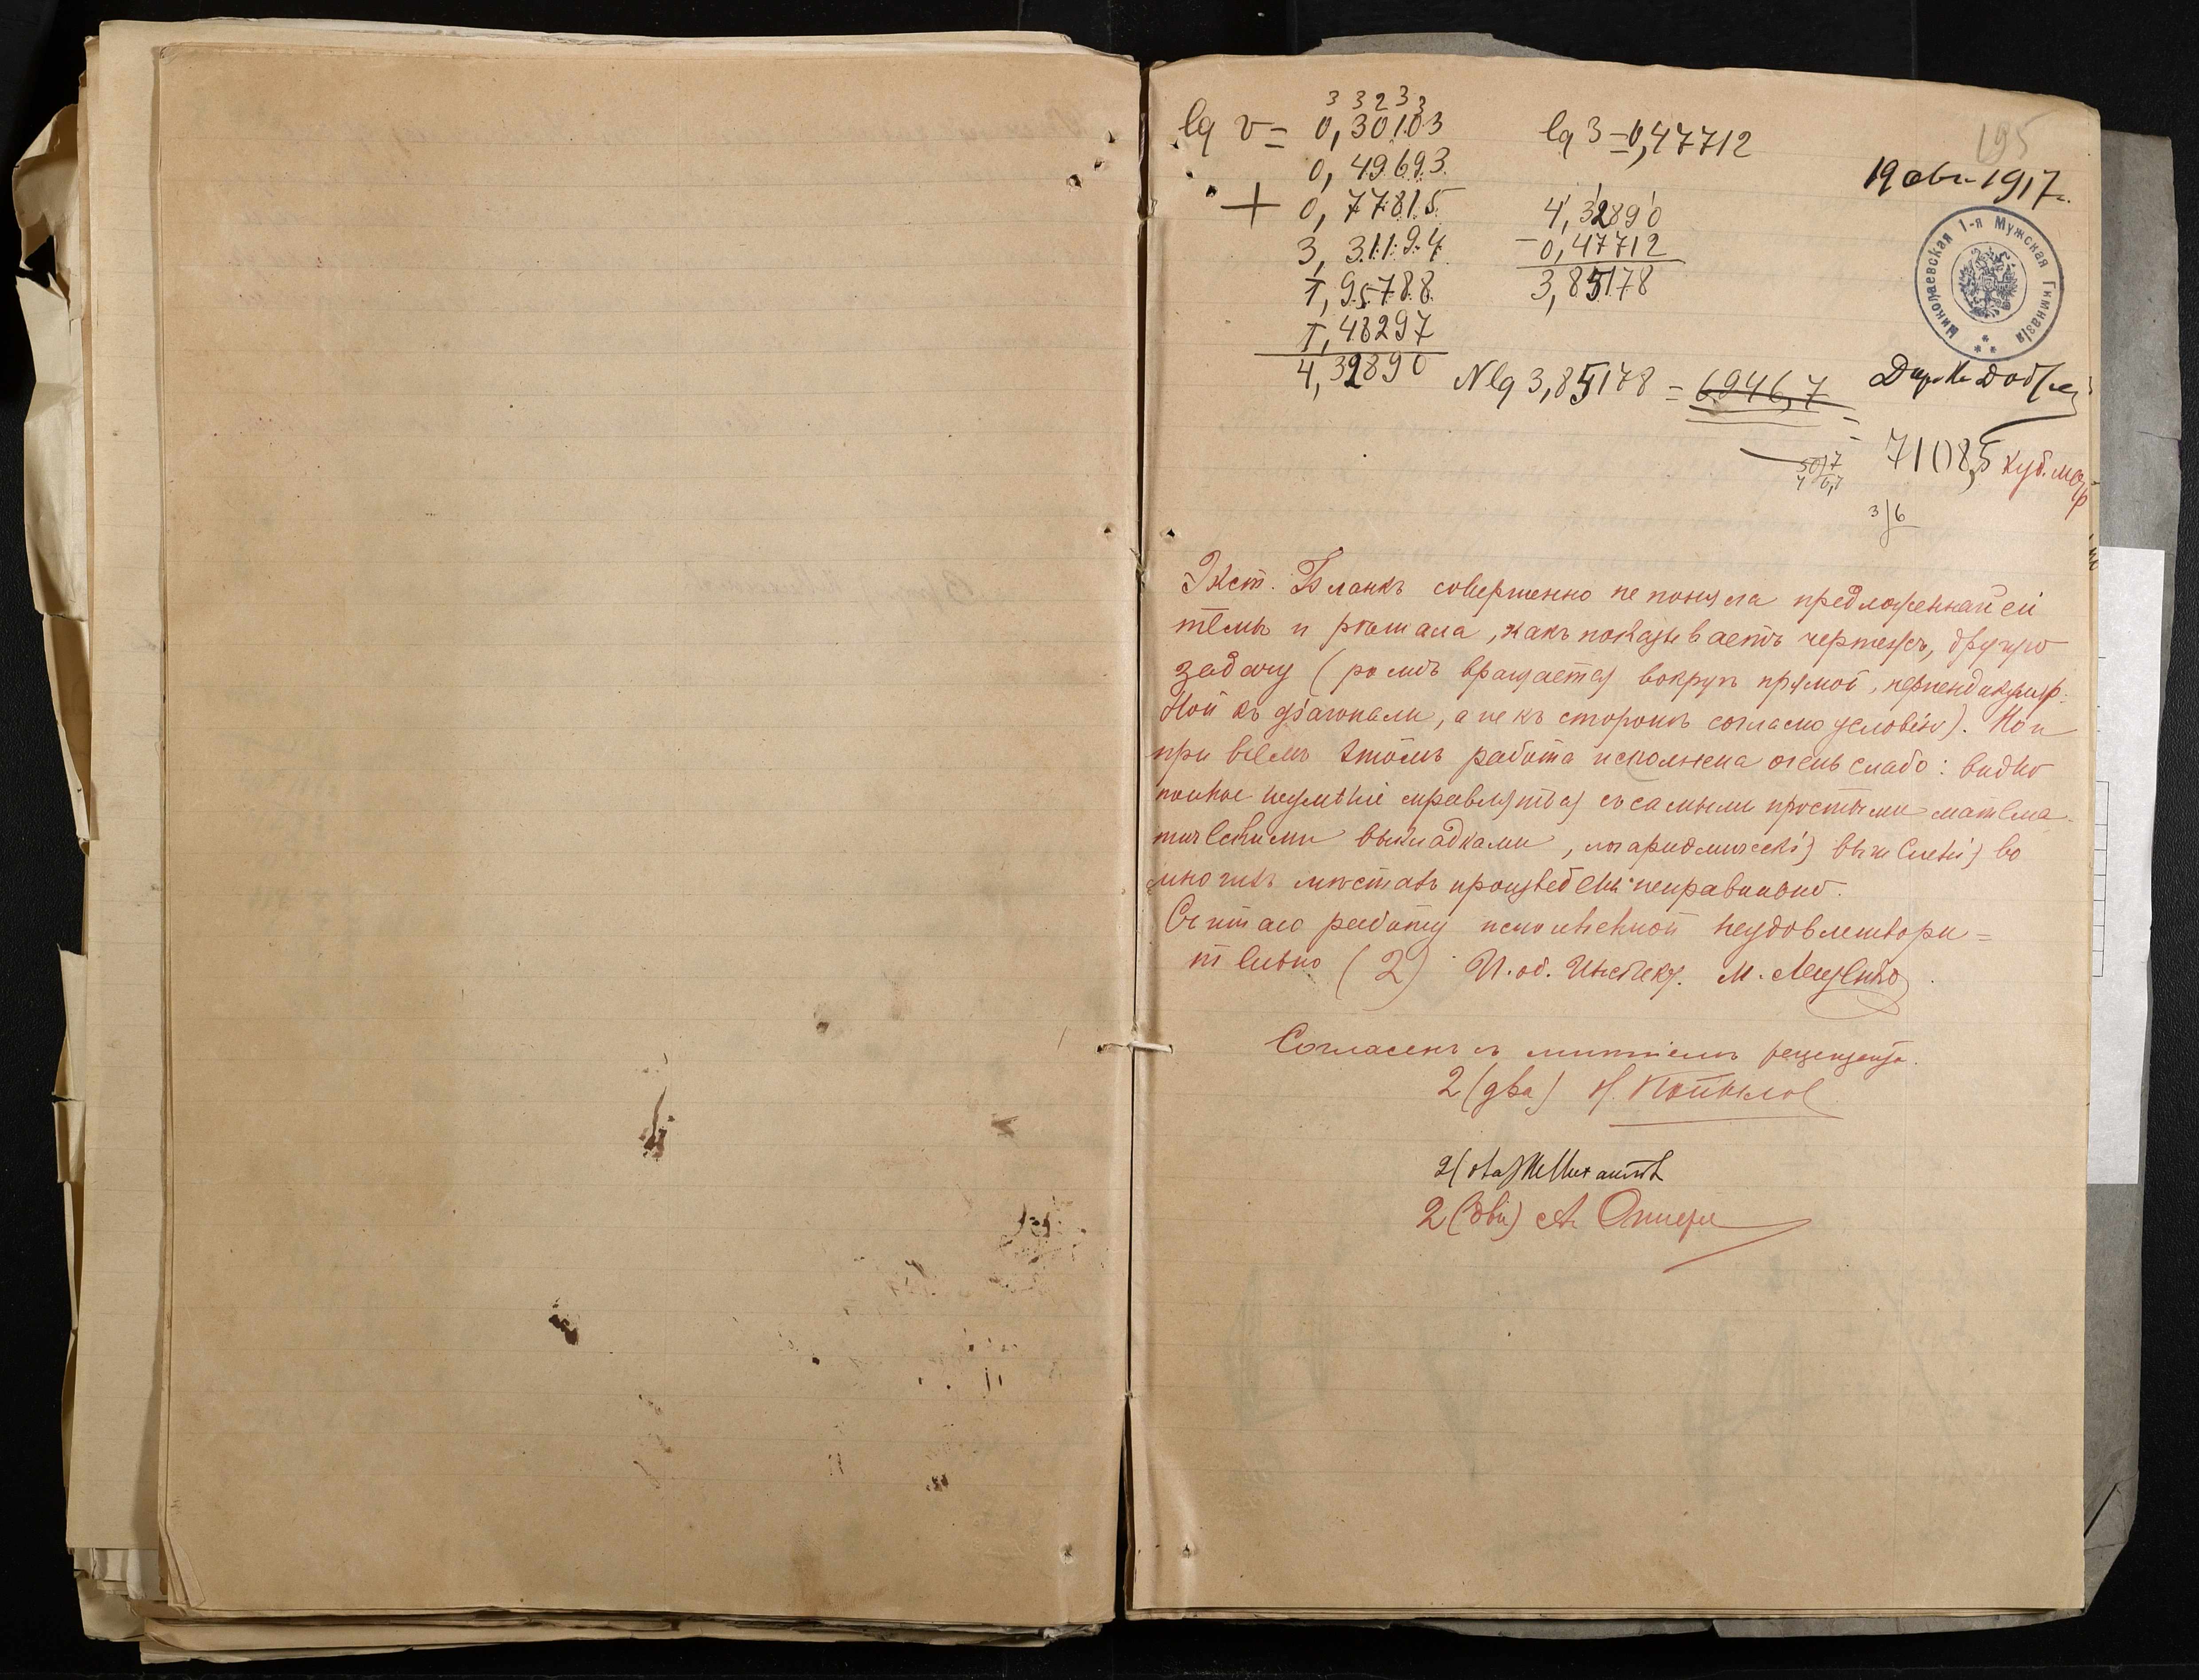 195
19 авг. 1917 г.
Николаевская 1-я Мужская Гимназія
3 3 2 3 3
lg v = 0,30103
0,49693
+ 0,77815
3,31194
1,95788
1,48297
4,32890
lg 3 = 0,47712
4,32890
- 0,47712
3,85178
Nlg 3,85178 = 6946,7
= 7108,5 куб.
3/6
Экст. Бланкъ совершенно не поняла предложенной ей
темы и рѣшала, какъ показываетъ чертежъ, другую
задачу (ромбъ вращается вокругъ прямой, перпендикуляр-
ной къ діагонали, а не къ сторонѣ согласно условію). Но и
при всемъ этомъ работа исполнена очень слабо: видно
полное неумѣніе справляться съ самыми простыми матема-
тическими выкладками, логариѳмическія вычисленія во
многихъ мѣстахъ произведены неправильно.
Считаю работу исполненной неудовлетвори-
тельно (2) И. об. Инспек.  М.
Согласенъ съ мнѣніемъ рецензента.
2 (два) Н.
2 (два)
2 (два) А.